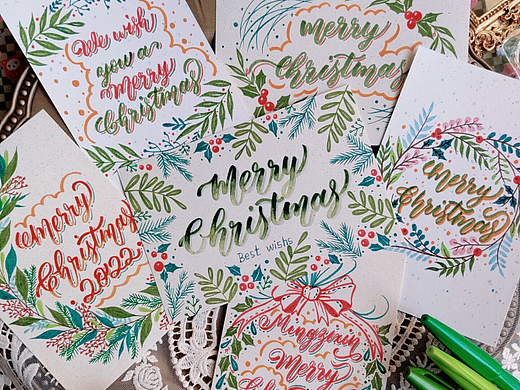 We wish
you a
Merry
Christmas
merry
christmas
merry
Christmas
2022
Merry
Christmas
Best wishs
merry
Christmas
Menggixin
Merry